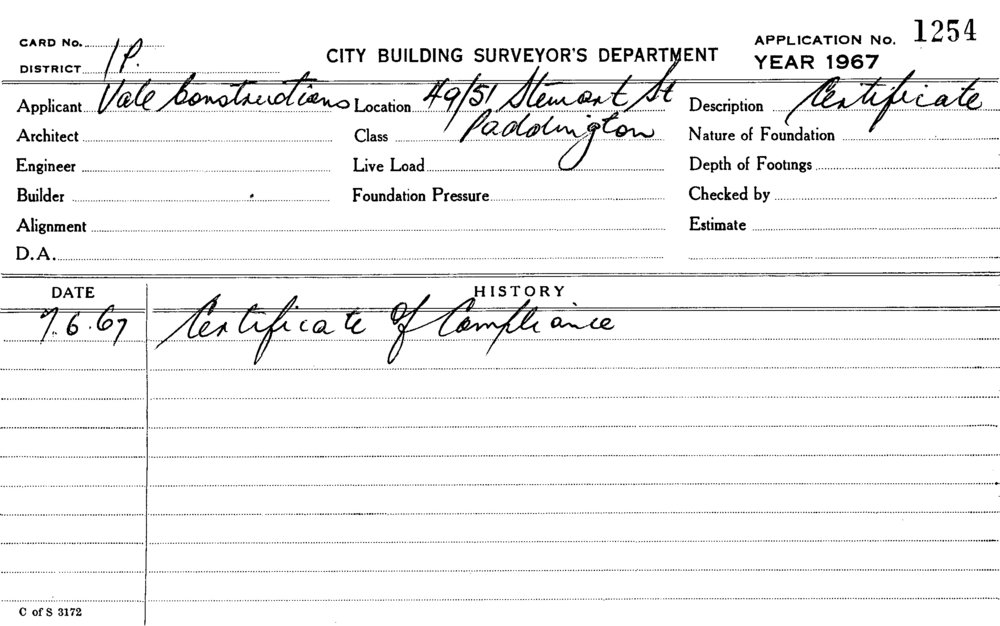 CARD No.
DISTRICT 1P.
CITY BUILDING SURVEYOR'S DEPARTMENT
APPLICATION No. 1254
YEAR 1967
Applicant Vale Constructions Location 49/51 Stewart St Description Certificate
Architect Class Paddington Nature of Foundation
Engineer Live Load Depth of Footings
Builder Foundation Pressure Checked by
Alignment Estimate
D.A.
DATE HISTORY
7.6.67 Certificate of Compliance
C of S 3172